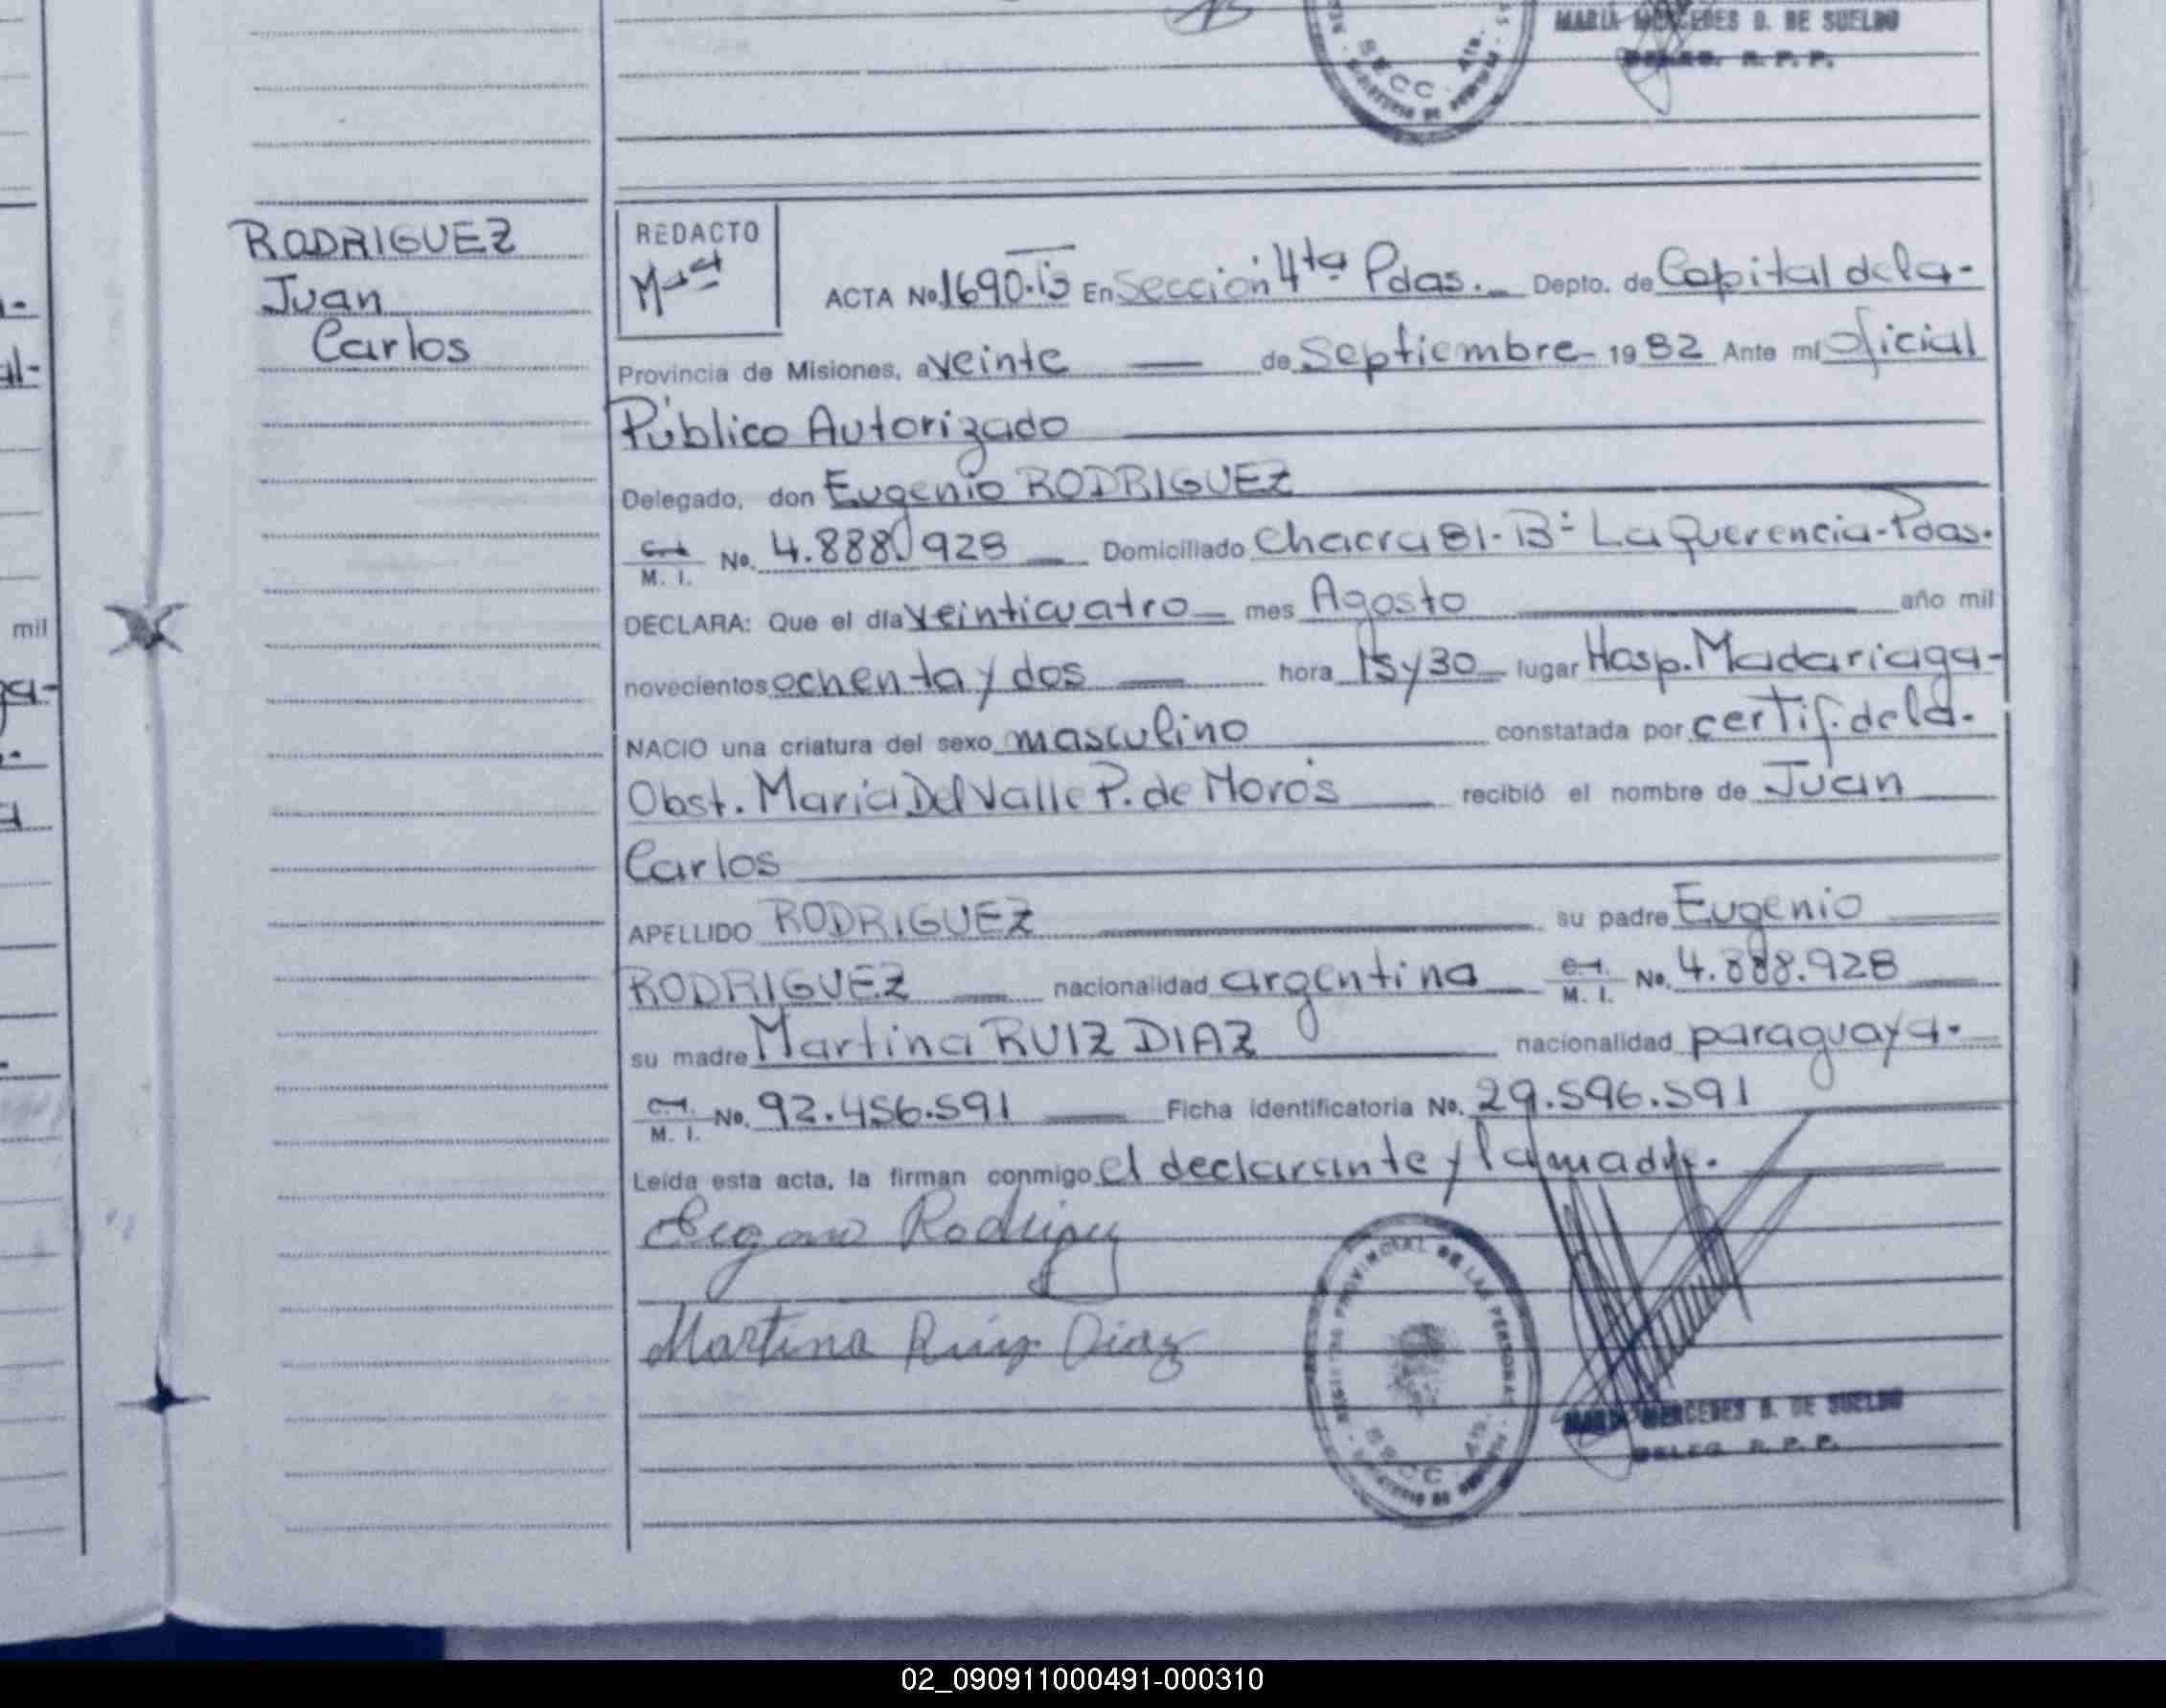 MARIA MERCEDES D. DE SUELDO
DELEG. R. P. P.
SECC. 4ta.
RODRIGUEZ
Juan
Carlos
REDACTO
ACTA No. 1690-T3 En Sección 4ta Pdas. Depto. de Capital de la-
Provincia de Misiones, a veinte de Septiembre 1982 Ante mi Oficial
Público Autorizado
Delegado, don Eugenio RODRIGUEZ
M. I. No. 4.888.928 Domiciliado Chacra 81-Bº La Querencia-Pdas.
DECLARA: Que el día veinticuatro mes Agosto año mil
novecientos ochenta y dos hora 15 y 30 lugar Hosp. Madariaga-
NACIO una criatura del sexo masculino constatada por certif. de la-
Obst. María Del Valle P. de Morós recibió el nombre de Juan
Carlos
APELLIDO RODRIGUEZ su padre Eugenio
RODRIGUEZ nacionalidad argentina C.I. M. I. No. 4.888.928
su madre Martina RUIZ DIAZ nacionalidad paraguaya.
C.I. M. I. No. 92.456.591 Ficha identificatoria No. 29.596.591
Leída esta acta, la firman conmigo el declarante y la madre.
Eugenio Rodriguez
Martina Ruiz Diaz
REGISTRO PROVINCIAL DE LAS PERSONAS
SECC. 4ta.
MARIA MERCEDES D. DE SUELDO
DELEG. R. P. P.
mil
02_090911000491-000310